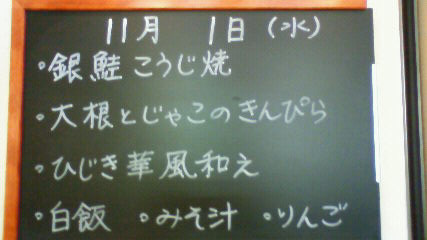 11月 1日(水)
・銀鮭こうじ焼
・大根とじゃこのきんぴら
・ひじき華風和え
・白飯 ・みそ汁 ・りんご